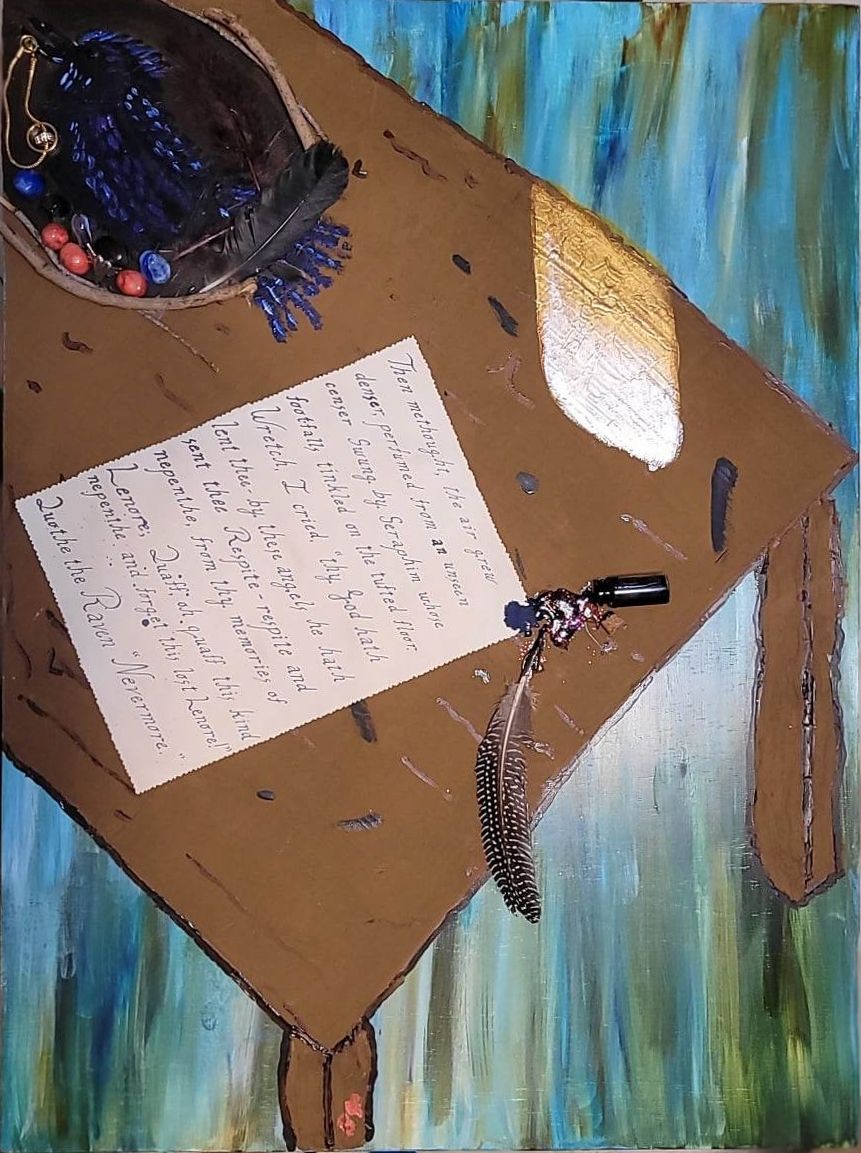 Then methought, the air grew
denser, perfumed from an unseen
censer Swung by Seraphim whose
footfalls tinkled on the tufted floor.
Wretch, I cried "thy God hath
lent thee-by these angels he hath
sent thee Respite-respite and
nepenthe, from thy memories of
Lenore; Quaff, oh quaff this kind
nepenthe and forget this lost Lenore!"
Quothe the Raven "Nevermore."